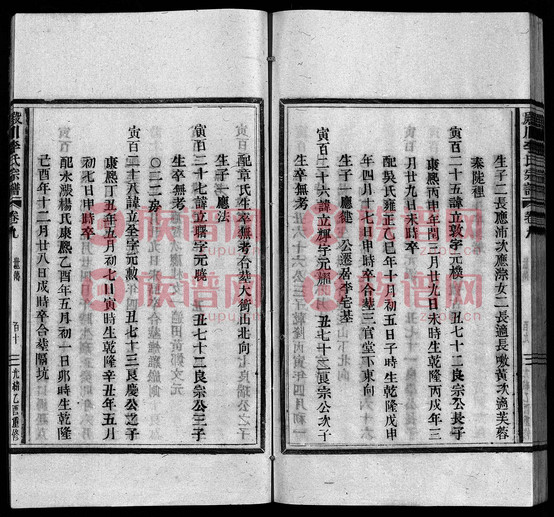 生子二長應沛次應淙女二長適長墩黃次適芙蓉
秦陡裡
寅百二十五諱立敦字元樸 丑七十二良宗公長子
康熙丙申年閏三月廿九日未時生乾隆丙戌年三
月廿九日未時卒
配吳氏雍正乙巳年十月初五日子時生乾隆戊申
年四月十七日申時卒合塟三官堂下東向
生子一應繼 公遷居李宅基
寅百二十六諱立輝字元旌 丑七十二良宗公次子
生卒無考
配章氏生卒無考合塟大衝山北向
生子一應法
寅百二十七諱立聯字元膦 丑七十二良宗公三子
生卒無考
〇三二房
寅百二十八諱立全字元勳 丑七十三良慶公之子
康熙丁丑年五月初七日寅時生乾隆辛丑年五月
初七日申時卒
配水濃楊氏康熙乙酉年五月初一日卯時生乾隆
己酉年十二月廿八日戌時卒合塟隔坑
嚴川李氏宗譜
卷九
百十
光緒乙酉重修
族谱网
zupu.cn